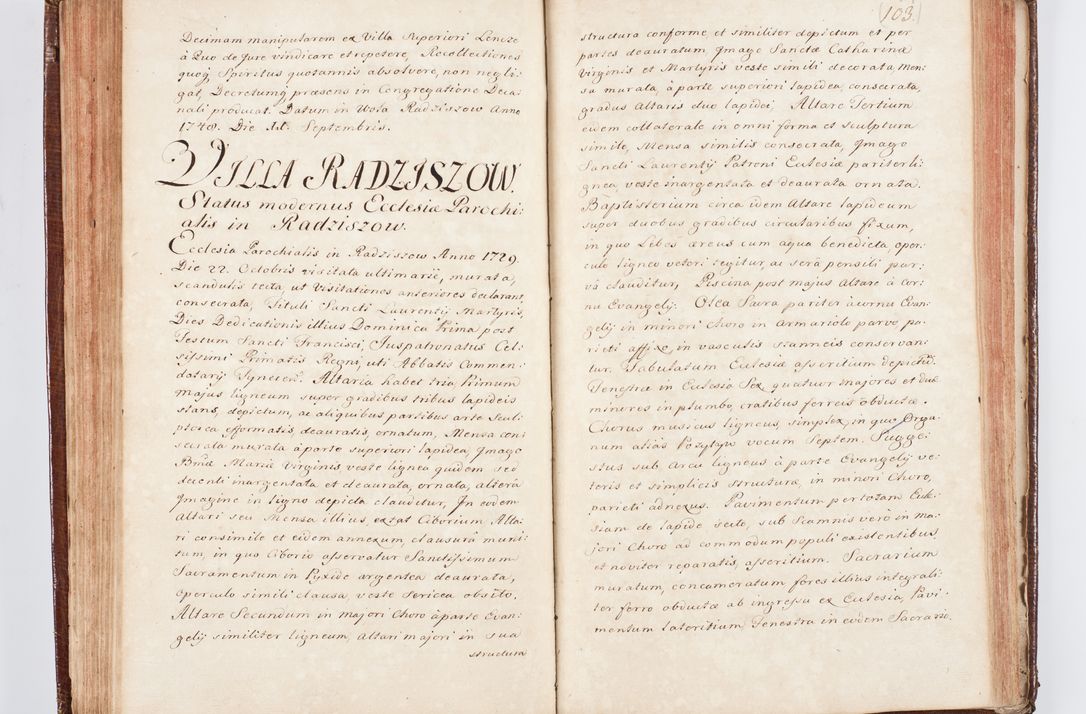 Decimam manipularem ex Villa Superiori Lencze
à Quo de Jure vindicare et repetere, Recollectiones
quoq Spiritus quotannis absolvere, non negli:
gat, Decretumq præsens in Congregatione Deca:
nali producat. Datum in Wola Radziszow Anno
1748. Die 1st. Septembris.
VILLA RADZISZOW.
Status modernus Ecclesiæ Parochi:
alis in Radziszow.
Ecclesia Parochialis in Radziszow Anno 1729.
Die 22. Octobris visitata ultimariè, murata,
scandulis tecta, ut Visitationes anteriores declarant,
consecrata, Tituli Sancti Laurentij Martyris,
Dies Dedicationis illius Dominica Prima post
Festum Sancti Francisci, Juspatronatus Cel:
sissimi Primatis Regni, uti Abbatis Commen:
datarij Tynecen. Altaria habet tria, Primum
majus ligneum super gradibus tribus lapideis
stans, depictum, ac aliquibus partibus arte Scul:
ptorea efformatis, deauratis, ornatum, Mensa con:
secrata murata à parte superiori lapidea, Jmago
Bmæ Mariæ Virginis veste lignea quidem sed
decenti inargentata et deaurata, ornata, alterâ
Jmagine in ligno depicta clauditur, Jn eodem
Altari seu Mensa illius, extat Ciborium Alta:
ri consimile et eidem annexum, clausurâ muni:
tum, in quo Ciborio asservatur Sanctissimum
Sacramentum in Pyxide argentea deaurata,
operculo simili clausa, veste Sericea obsito.
Altare Secundum in majori Choro à parte Evan:
gelij similiter ligneum, Altari majori in sua
structura
103.
structura conforme, et similiter depictum et per
partes deauratum, Jmago Sanctæ Catharinæ
Virginis et Martyris veste simili decorata, Men:
sa murata, à parte superiori lapidea, consecrata,
gradus Altaris duo lapidei. Altare Tertium
eidem collaterale in omni forma et sculptura
simile, Mensa similis consecrata, Jmago
Sancti Laurentij Patroni Ecclesiæ pariter li:
gnea, veste inargentata et deaurata ornata.
Baptisterium circa idem Altare lapideum
super duobus gradibus circularibus fixum,
in quo Lebes æreus cum aqua benedicta, oper:
culo ligneo veteri tegitur, ac serâ pensili par:
vâ clauditur, Piscina post majus Altare à cor:
nu Evangelij. Olea Sacra pariter à cornu Evan:
gelij in minori Choro in armariolo parvo pa:
rieti affixo, in vasculis stanneis conservan:
tur. Tabulatum Ecclesiæ asseritium depictū.
Fenestræ in Ecclesia Sex, quatuor majores et duæ
minores in plumbo, cratibus ferreis obductæ.
Chorus musicus ligneus, simplex, in quo Orga:
num aliàs Pozytyw vocum Septem. Sugge:
stus sub Arcu ligneus à parte Evangelij ve:
teris et simplicis structuræ, in minori Choro,
parieti adnexus. Pavimentum per totam Eccle:
siam de lapide secto, sub Scamnis verò in ma:
jori Choro ad commodum populi existentibus,
et noviter reparatis, asseritium. Sacrarium
muratum, concameratum fores illius integrali:
ter ferro obductæ ab ingressu ex Ecclesia, Pavi:
mentum lateritium, Fenestra in eodem Sacrario